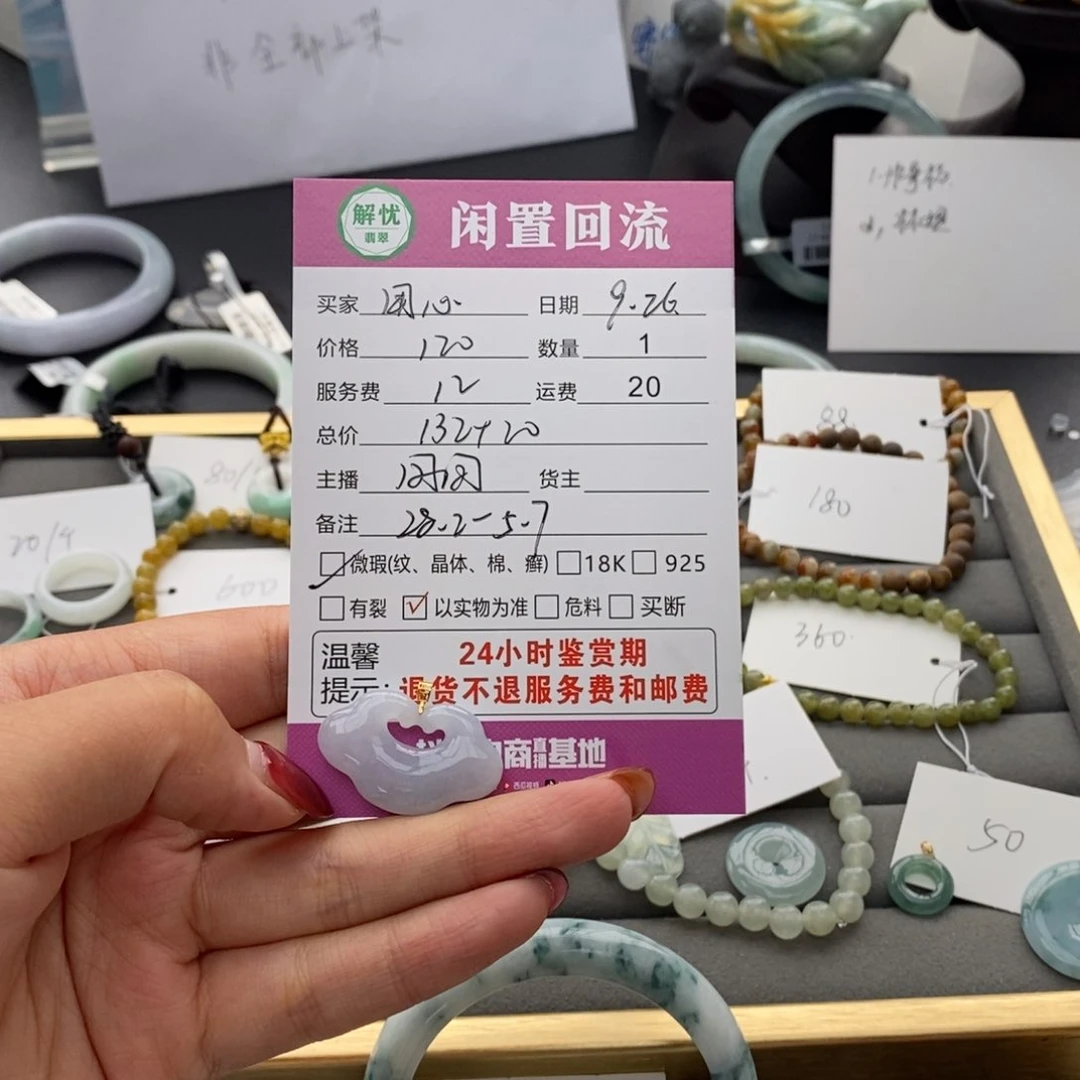 非全部上架
解忧
翡翠
闲置回流
买家 团心 日期 9.26
价格 120 数量 1
服务费 12 运费 20
总价 132+20
主播 货主
备注 28.2-5.7
微瑕(纹、晶体、棉、癣) 18K 925
有裂 ✓ 以实物为准 危料 买断
温馨 24小时鉴赏期
提示: 退货不退服务费和邮费
电商直播基地
88
180
80/
20/4
600
360
50